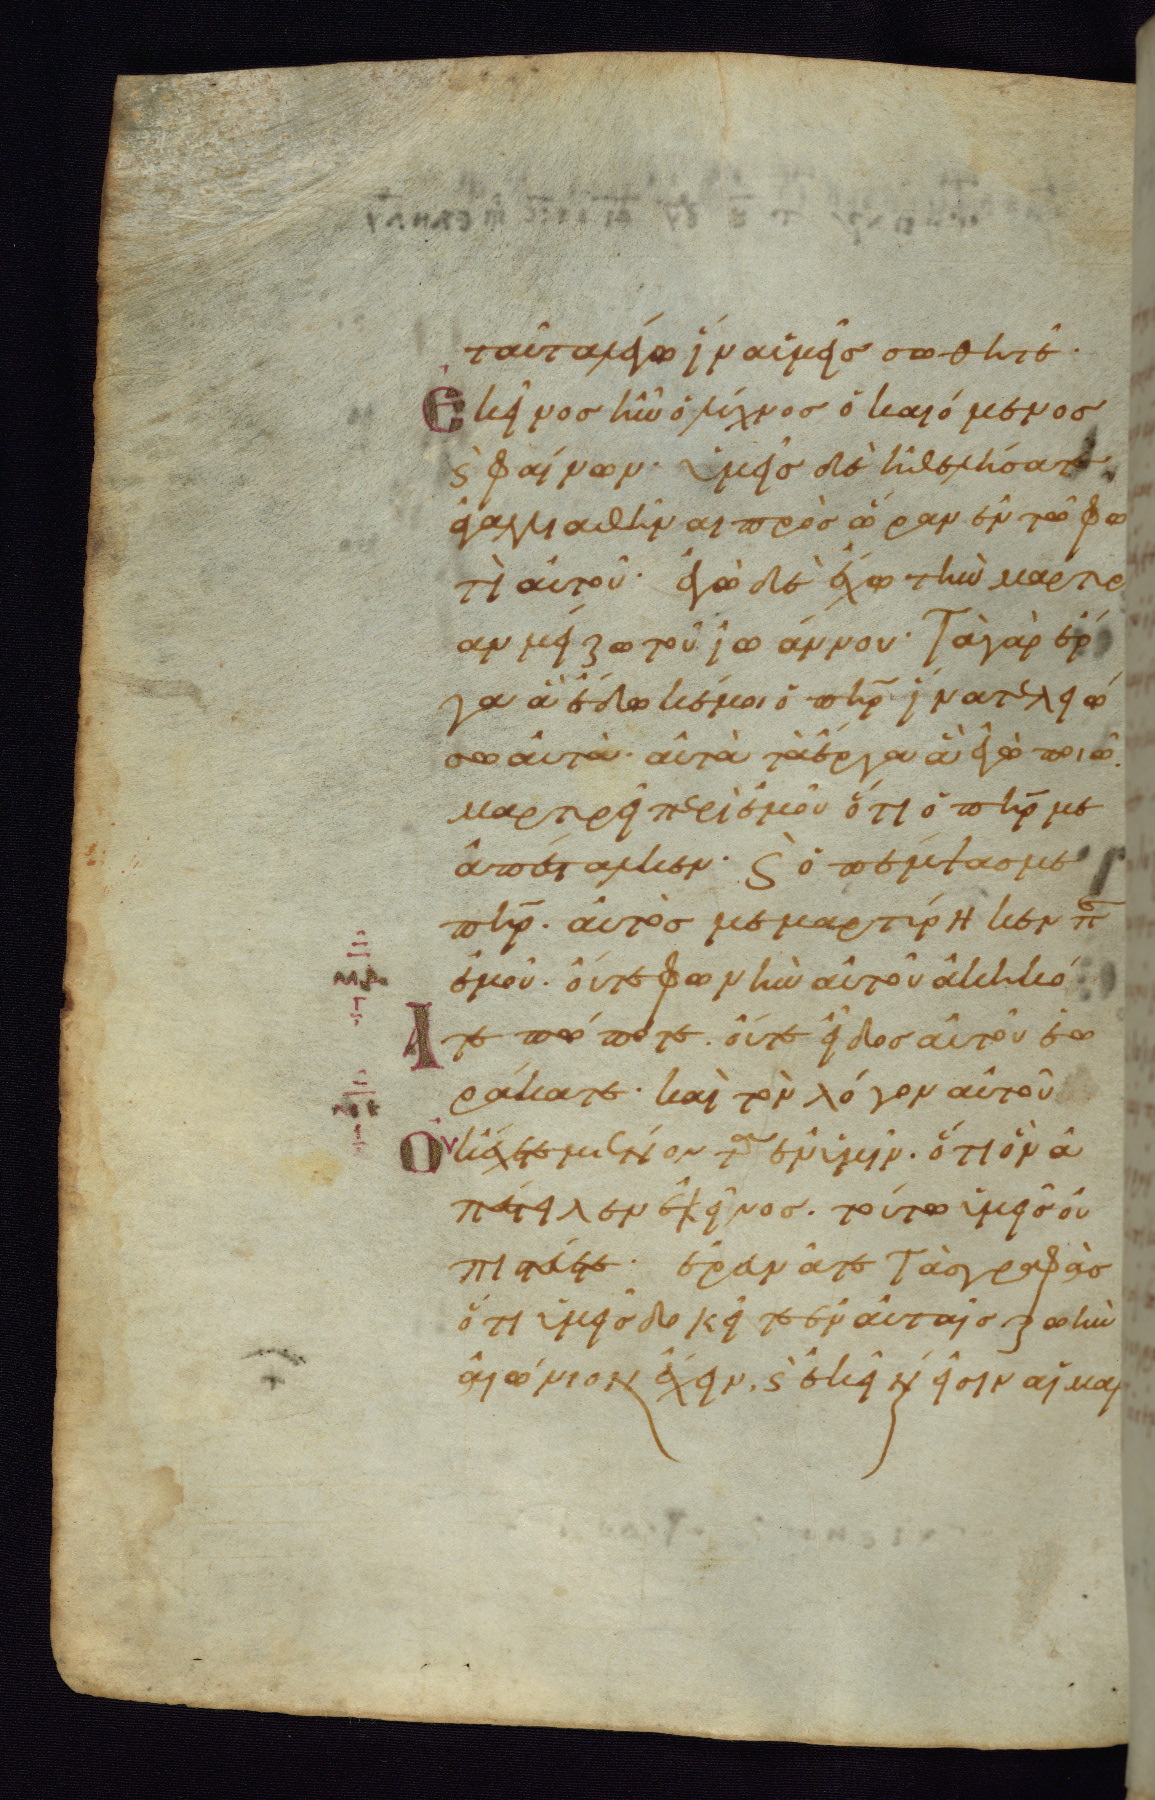 ταῦτα λέγω ἵνα ὑμεῖς σωθῆτε·
Ἐκεῖνος ἦν ὁ λύχνος ὁ καιόμενος
ϛ φαίνων· ὑμεῖς δὲ ἠθελήσατε
ἀγαλλιαθῆναι πρὸς ὥραν ἐν τῷ φω
τὶ αὐτοῦ· ἐγὼ δὲ ἔχω τὴν μαρτυρ
αν μείζω τοῦ ἰωάννου· Τὰ γὰρ ἔρ
γα ἃ ἔδωκέ μοι ὁ πηρ ἵνα τελειώ
σω αὐτὰ· αὐτὰ τὰ ἔργα ἃ ἐγὼ ποιῶ.
μαρτυρεῖ περὶ ἐμοῦ ὅτι ὁ πηρ με
ἀπέσταλκεν· ϛ ὁ πέμψας με
πηρ. αὐτὸς μεμαρτύρηκεν π
ἐμοῦ. οὔτε φωνὴν αὐτοῦ ἀκηκό
ατε πώποτε. οὔτε εἶδος αὐτοῦ ἑω
ράκατε· καὶ τὸν λόγον αὐτοῦ
Οὐκ ἔχετε μένοντα ἐν ὑμῖν. ὅτι ὃν ἀ
πέστειλεν ἐκεῖνος. τούτω ὑμεῖς οὐ
πιστεύετε· ἐρευνᾶτε Τὰς γραφὰς
ὅτι ὑμεῖς δοκεῖτε ἐν αὐταῖς ζωὴν
αἰώνιον ἔχειν. ϛ ἐκεῖναι εἰσιν αἱ μαρ